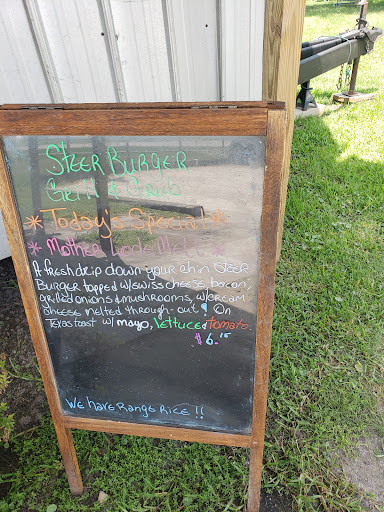 Steer Burger
Grill & Grub
*Today's Special*
*Mother
A fresh drip down your chin Steer
Burger topped w/swiss cheese, bacon,
grilled onions & mushrooms, w/cream
cheese melted through-out! On
Texas toast w/ mayo, lettuce & tomato.
$6.15
We have Range Rice !!